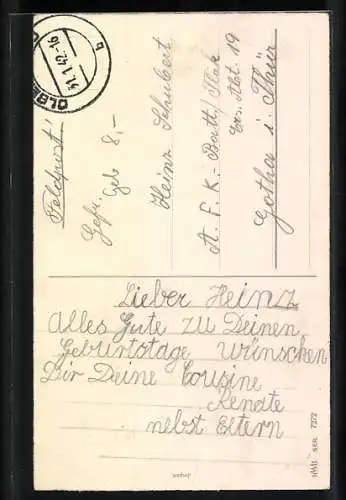 31.1.42-16
b
Feldpost!
Gefr.
Geb 8,-
Heinz Schubert
A. F. K.- Batt/Flak
Ers. Abt. 19
Gotha i. Thür
Lieber Heinz
Alles Gute zu Deinen
Geburtstage wünschen
Dir Deine Cousine
Renate
nebst Eltern
SER. 7272